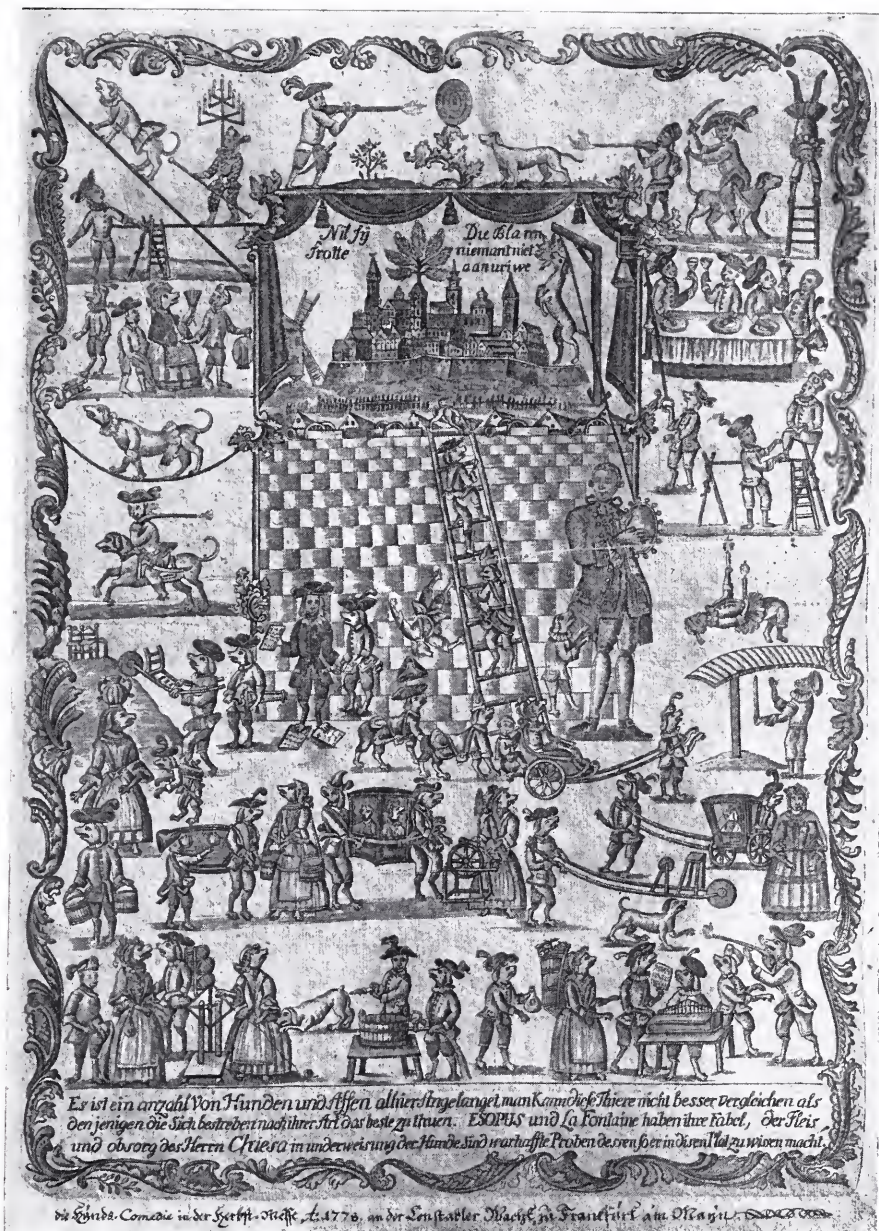 Nil sÿ
frotte
Die Bla m
niemant niet
aan uriwe
Es ist ein anzahl Von Hunden und Affen alhier Angelanget man Kann diese Thiere nicht besser vergleichen als
den jenigen die Sich bestreben nach ihrer Art das beste zu thuen. ESOPUS und la Fontaine haben ihre Fabel, der Fleis
und obsorg des Herrn Chiesa in underweisung der Hunde Sind warhaffte Proben dessen so er in disen Plaz zu wisen macht.
die Hunds-Comedie in der Herbst-Messe Aº 1778. an der Constabler Wacht zu Franckfurt am Mayn.